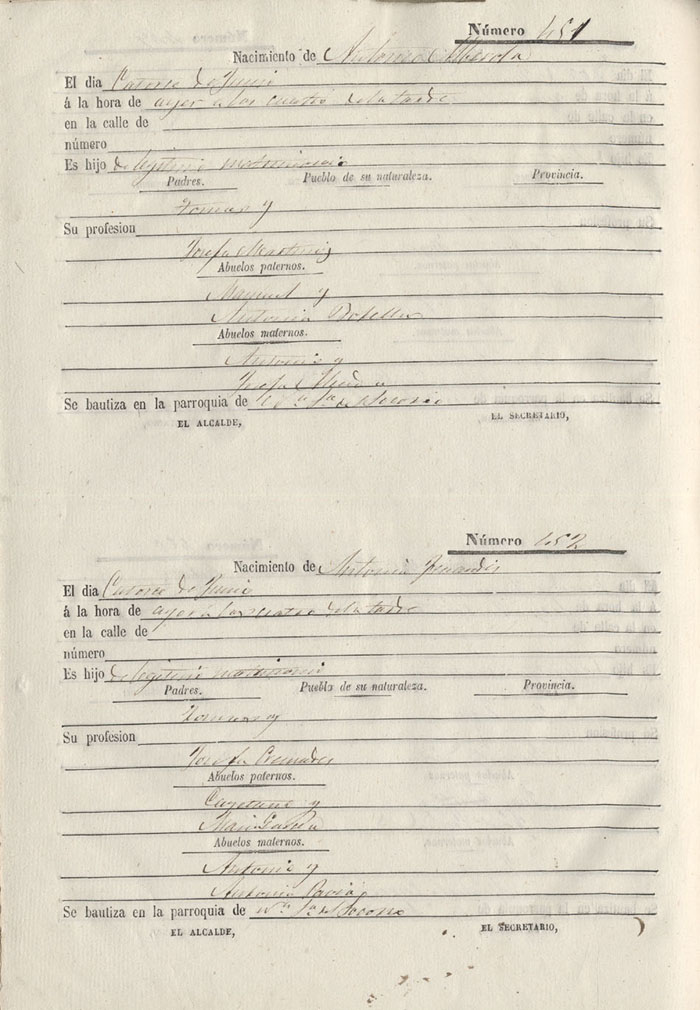 Número 451
Nacimiento de Antonia Alberola
El dia Catorse de Junio
á la hora de ayer a las cuatro de la tarde
en la calle de
número
Es hijo de legitimo matrimonio
Padres. Pueblo de su naturaleza. Provincia.
Tomas y
Su profesion
Josefa Martinez
Abuelos paternos.
Manuel y
Antonia Botella
Abuelos maternos.
Antonio y
Josefa
Se bautiza en la parroquia de Ntra Sra de Socorro
EL ALCALDE, EL SECRETARIO,
Número 452
Nacimiento de Antonia
El dia Catorse de Junio
á la hora de ayer a las cuatro de la tarde
en la calle de
número
Es hijo de legitimo matrimonio
Padres. Pueblo de su naturaleza. Provincia.
Tomas y
Su profesion
Josefa Cremades
Abuelos paternos.
Cayetano y
Maria
Abuelos maternos.
Antonio y
Antonia
Se bautiza en la parroquia de Ntra Sra de Socorro
EL ALCALDE, EL SECRETARIO,